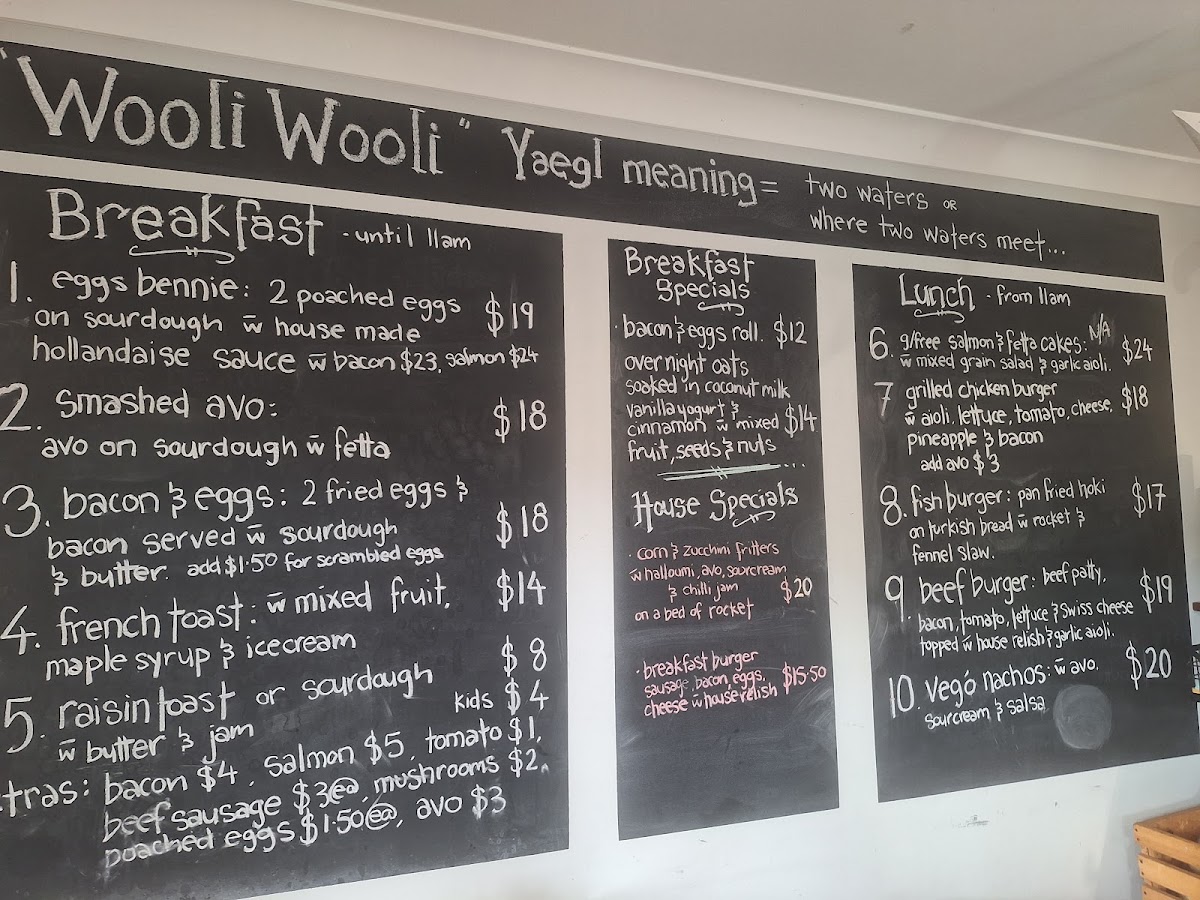 "Wooli Wooli" Yaegl meaning = two waters or
where two waters meet...
Breakfast - until 11am
1. eggs bennie: 2 poached eggs $19
on sourdough w̄ house made
hollandaise sauce w̄ bacon $23, salmon $24
2. smashed avo: $18
avo on sourdough w̄ fetta
3. bacon & eggs: 2 fried eggs &
bacon served w̄ sourdough $18
& butter. add $1.50 for scrambled eggs
4. french toast: w̄ mixed fruit, $14
maple syrup & icecream
5. raisin toast or sourdough $8
w̄ butter & jam kids $4
tras: bacon $4, salmon $5, tomato $1,
beef sausage $3e@, mushrooms $2,
poached eggs $1.50e@, avo $3
Breakfast
Specials
· bacon & eggs roll. $12
over night oats
soaked in coconut milk
vanilla yogurt &
cinnamon w̄ mixed $14
fruit, seeds & nuts
House Specials
· corn & zucchini fritters
w̄ halloumi, avo, sourcream
& chilli jam $20
on a bed of rocket
· breakfast burger
sausage, bacon, eggs, $15.50
cheese w̄ house relish
Lunch - from 11am
6. g/free salmon & fetta cakes: N/A $24
w̄ mixed grain salad & garlic aioli.
7 grilled chicken burger
w̄ aioli, lettuce, tomato, cheese, $18
pineapple & bacon
add avo $3
8. fish burger: pan fried hoki $17
on turkish bread w̄ rocket &
fennel slaw.
9. beef burger: beef patty, $19
bacon, tomato, lettuce & swiss cheese
topped w̄ house relish & garlic aioli.
10. vego nachos: w̄ avo, $20
sourcream & salsa